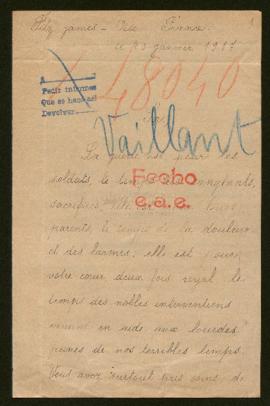 Fitz james - Oise France.
le 23 janvier 1917
48040
A
Pedir informes
Que se hace así
Devolver
Vaillant
Sire,
La guerre est pour les
soldats, le temps des sanglants
Fecho
e.a.e.
sacrifices
parents, le temps de la douleur
et des larmes; elle est pour
votre cœur deux fois royal le
temps des nobles interventions
venant en aide aux lourdes
peines de nos terribles temps.
Vous avez surtout pris soins de